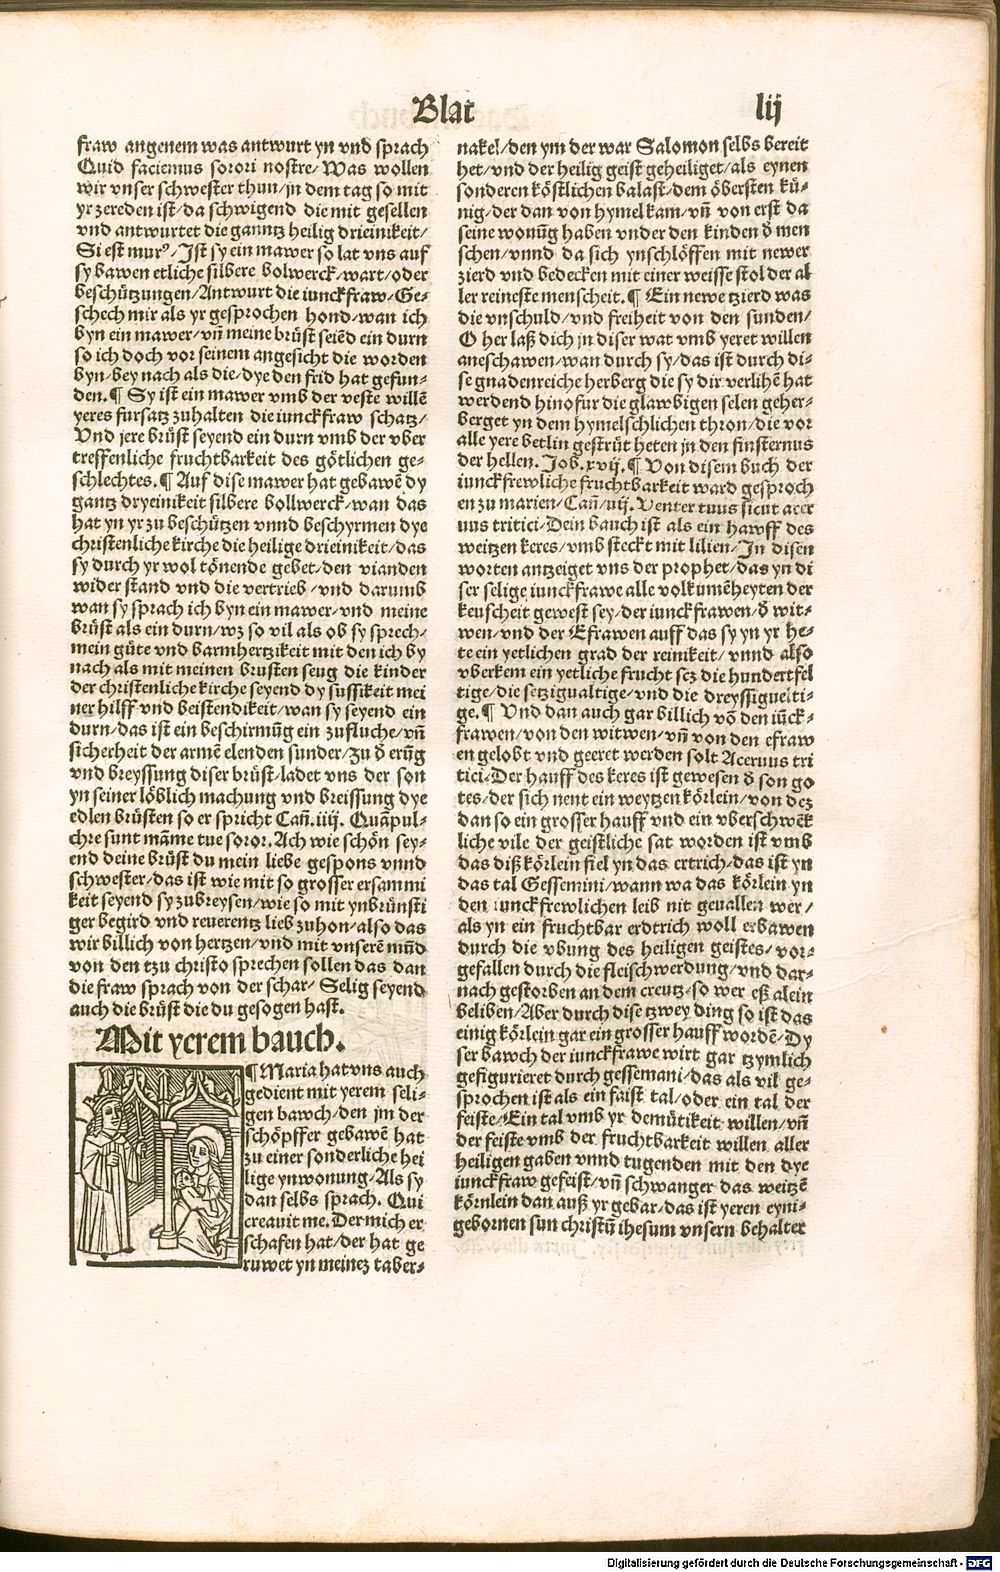 Blat lij
fraw angenem was antwurt yn vnd sprach
Quid faciemus sorori nostre/ Was wollen
wir vnser schwester thun/ jn dem tag so mit
yr zereden ist/ da schwigend die mit gesellen
vnd antwurtet die ganntz heilig drieinikeit/
Si est murꝰ/ Ist sy ein mawer so lat vns auf
sy bawen etliche silbere bolwerck/ wart/ oder
beschützungen/ Antwurt die iunckfraw/ Ge⸗
schech mir als yr gesprochen hond/ wan ich
byn ein mawer/ vñ meine brüst seiēd ein durn
so ich doch vor seinem angesicht die worden
byn/ bey nach als die/ dye den frid hat gefun⸗
den. ¶ Sy ist ein mawer vmb der veste willē
yeres fursatz zuhalten die iunckfraw schatz/
Vnd jere brüst seyend ein durn vmb der vber
treffenliche fruchtbarkeit des götlichen ge⸗
schlechtes. ¶ Auf dise mawer hat gebawē dy
gantz dryeinikeit silbere bollwerck/ wan das
hat yn yr zu beschützen vnnd beschyrmen dye
christenliche kirche die heilige drieinikeit/ das
sy durch yr wol tönende gebet/ den vianden
wider stand vnd die vertrieb/ vnd darumb
wan sy sprach ich byn ein mawer/ vnd meine
brüst als ein durn/ wz so vil als ob sy sprech/
mein güte vnd barmhertzikeit mit den ich by
nach als mit meinen brusten seug die kinder
der christenliche kirche seyend dy sussikeit mei
ner hilff vnd beistendikeit/ wan sy seyend ein
durn/ das ist ein beschirmūg ein zufluche/ vñ
sicherheit der armē elenden sunder/ Zu ð erūg
vnd breyssung diser brüst/ ladet vns der son
yn seiner löblich machung vnd breissung dye
edlen brüsten so er spricht Cañ. iiij. Quāpul⸗
chre sunt māme tue soror. Ach wie schön sey⸗
end deine brüst du mein liebe gespons vnnd
schwester/ das ist wie mit so grosser ersammi
keit seyend sy zubreysen/ wie so mit ynbrünsti
ger begird vnd reuerentz lieb zuhon/ also das
wir billich von hertzen/ vnd mit vnserē mūd
von den tzu christo sprechen sollen das dan
die fraw sprach von der schar/ Selig seyend
auch die brüst die du gesogen hast.
Mit yerem bauch.
¶ Maria hat vns auch
gedient mit yerem seli⸗
gen bawch/ den jm der
schöpffer gebawē hat
zu einer sonderliche hei
lige ynwonung/ Als sy
dan selbs sprach. Qui
creauit me. Der mich er
schafen hat/ der hat ge
ruwet yn meinez taber⸗
nakel/ den ym der war Salomon selbs bereit
het/ vnd der heilig geist geheiliget/ als eynen
sonderen köstlichen balast/ dem öbersten kü⸗
nig/ der dan von hymel kam/ vñ von erst da
seine wonūg haben vnder den kinden ð men
schen/ vnnd da sich ynschlöffen mit newer
zierd vnd bedecken mit einer weisse stol der al
ler reineste menscheit. ¶ Ein newe tzierd was
die vnschuld/ vnd freiheit von den sunden/
O her laß dich jn diser wat vmb yeret willen
aneschawen/ wan durch sy/ das ist durch di⸗
se gnadenreiche herberg die sy dir verlihē hat
werdend hinofur die glawbigen selen geher⸗
berget yn dem hymelschlichen thron/ die vor
alle yere betlin gestrüt heten jn den finsternus
der hellen. Job. xvij. ¶ Von disem buch der
iunckfrewliche fruchtbarkeit ward gesproch
en zu marien/ Cañ/ vij. Venter tuus sicut acer
uus tritici/ Dein bauch ist als ein hawff des
weitzen keres/ vmb steckt mit lilien/ In disen
worten antzeiget vns der prophet/ das yn di
ser selige iunckfrawe alle volkumēheyten der
keuscheit gewest sey/ der iunckfrawen/ ð wit⸗
wen/ vnd der Efrawen auff das sy yn yr he⸗
te ein yetlichen grad der reinikeit/ vnnd also
vberkem ein yetliche frucht sez die hundertfel
tige/ die setzigualtige/ vnd die dreyssigueltí⸗
ge. ¶ Vnd dan auch gar billich vō den iūck⸗
frawen/ von den witwen/ vñ von den efraw
en gelobt vnd geeret werden solt Aceruus tri
tici/ Der hauff des keres ist gewesen ð son go
tes/ der sich nent ein weytzen körlein/ von dez
dan so ein grosser hauff vnd ein vberschwēk
liche vile der geistliche sat worden ist vmb
das diß körlein fiel yn das ertrich/ das ist yn
das tal Gessemini/ wann wa das körlein yn
den iunckfrewlichen leib nit geuallen wer/
als yn ein fruchtbar erdtrich woll erbawen
durch die vbung des heiligen geistes/ vor⸗
gefallen durch die fleischwerdung/ vnd dar⸗
nach gestorben an dem creutz/ so wer eß alein
beliben/ Aber durch dise tzwey ding so ist das
einig körlein gar ein grosser hauff wordē/ Dy
ser bawch der iunckfrawe wirt gar tzymlich
gefigurieret durch gessemani/ das als vil ge⸗
sprochen ist als ein faist tal/ oder ein tal der
feiste/ Ein tal vmb yr demütikeit willen/ vñ
der feiste vmb der fruchtbarkeit willen aller
heiligen gaben vnnd tugenden mit den dye
iunckfraw gefeist/ vñ schwanger das weitzē
körnlein dan auß yr gebar/ das ist yeren eyni⸗
gebornen sun christū ihesum vnsern behalter
Digitalisierung gefördert durch die Deutsche Forschungsgemeinschaft - DFG